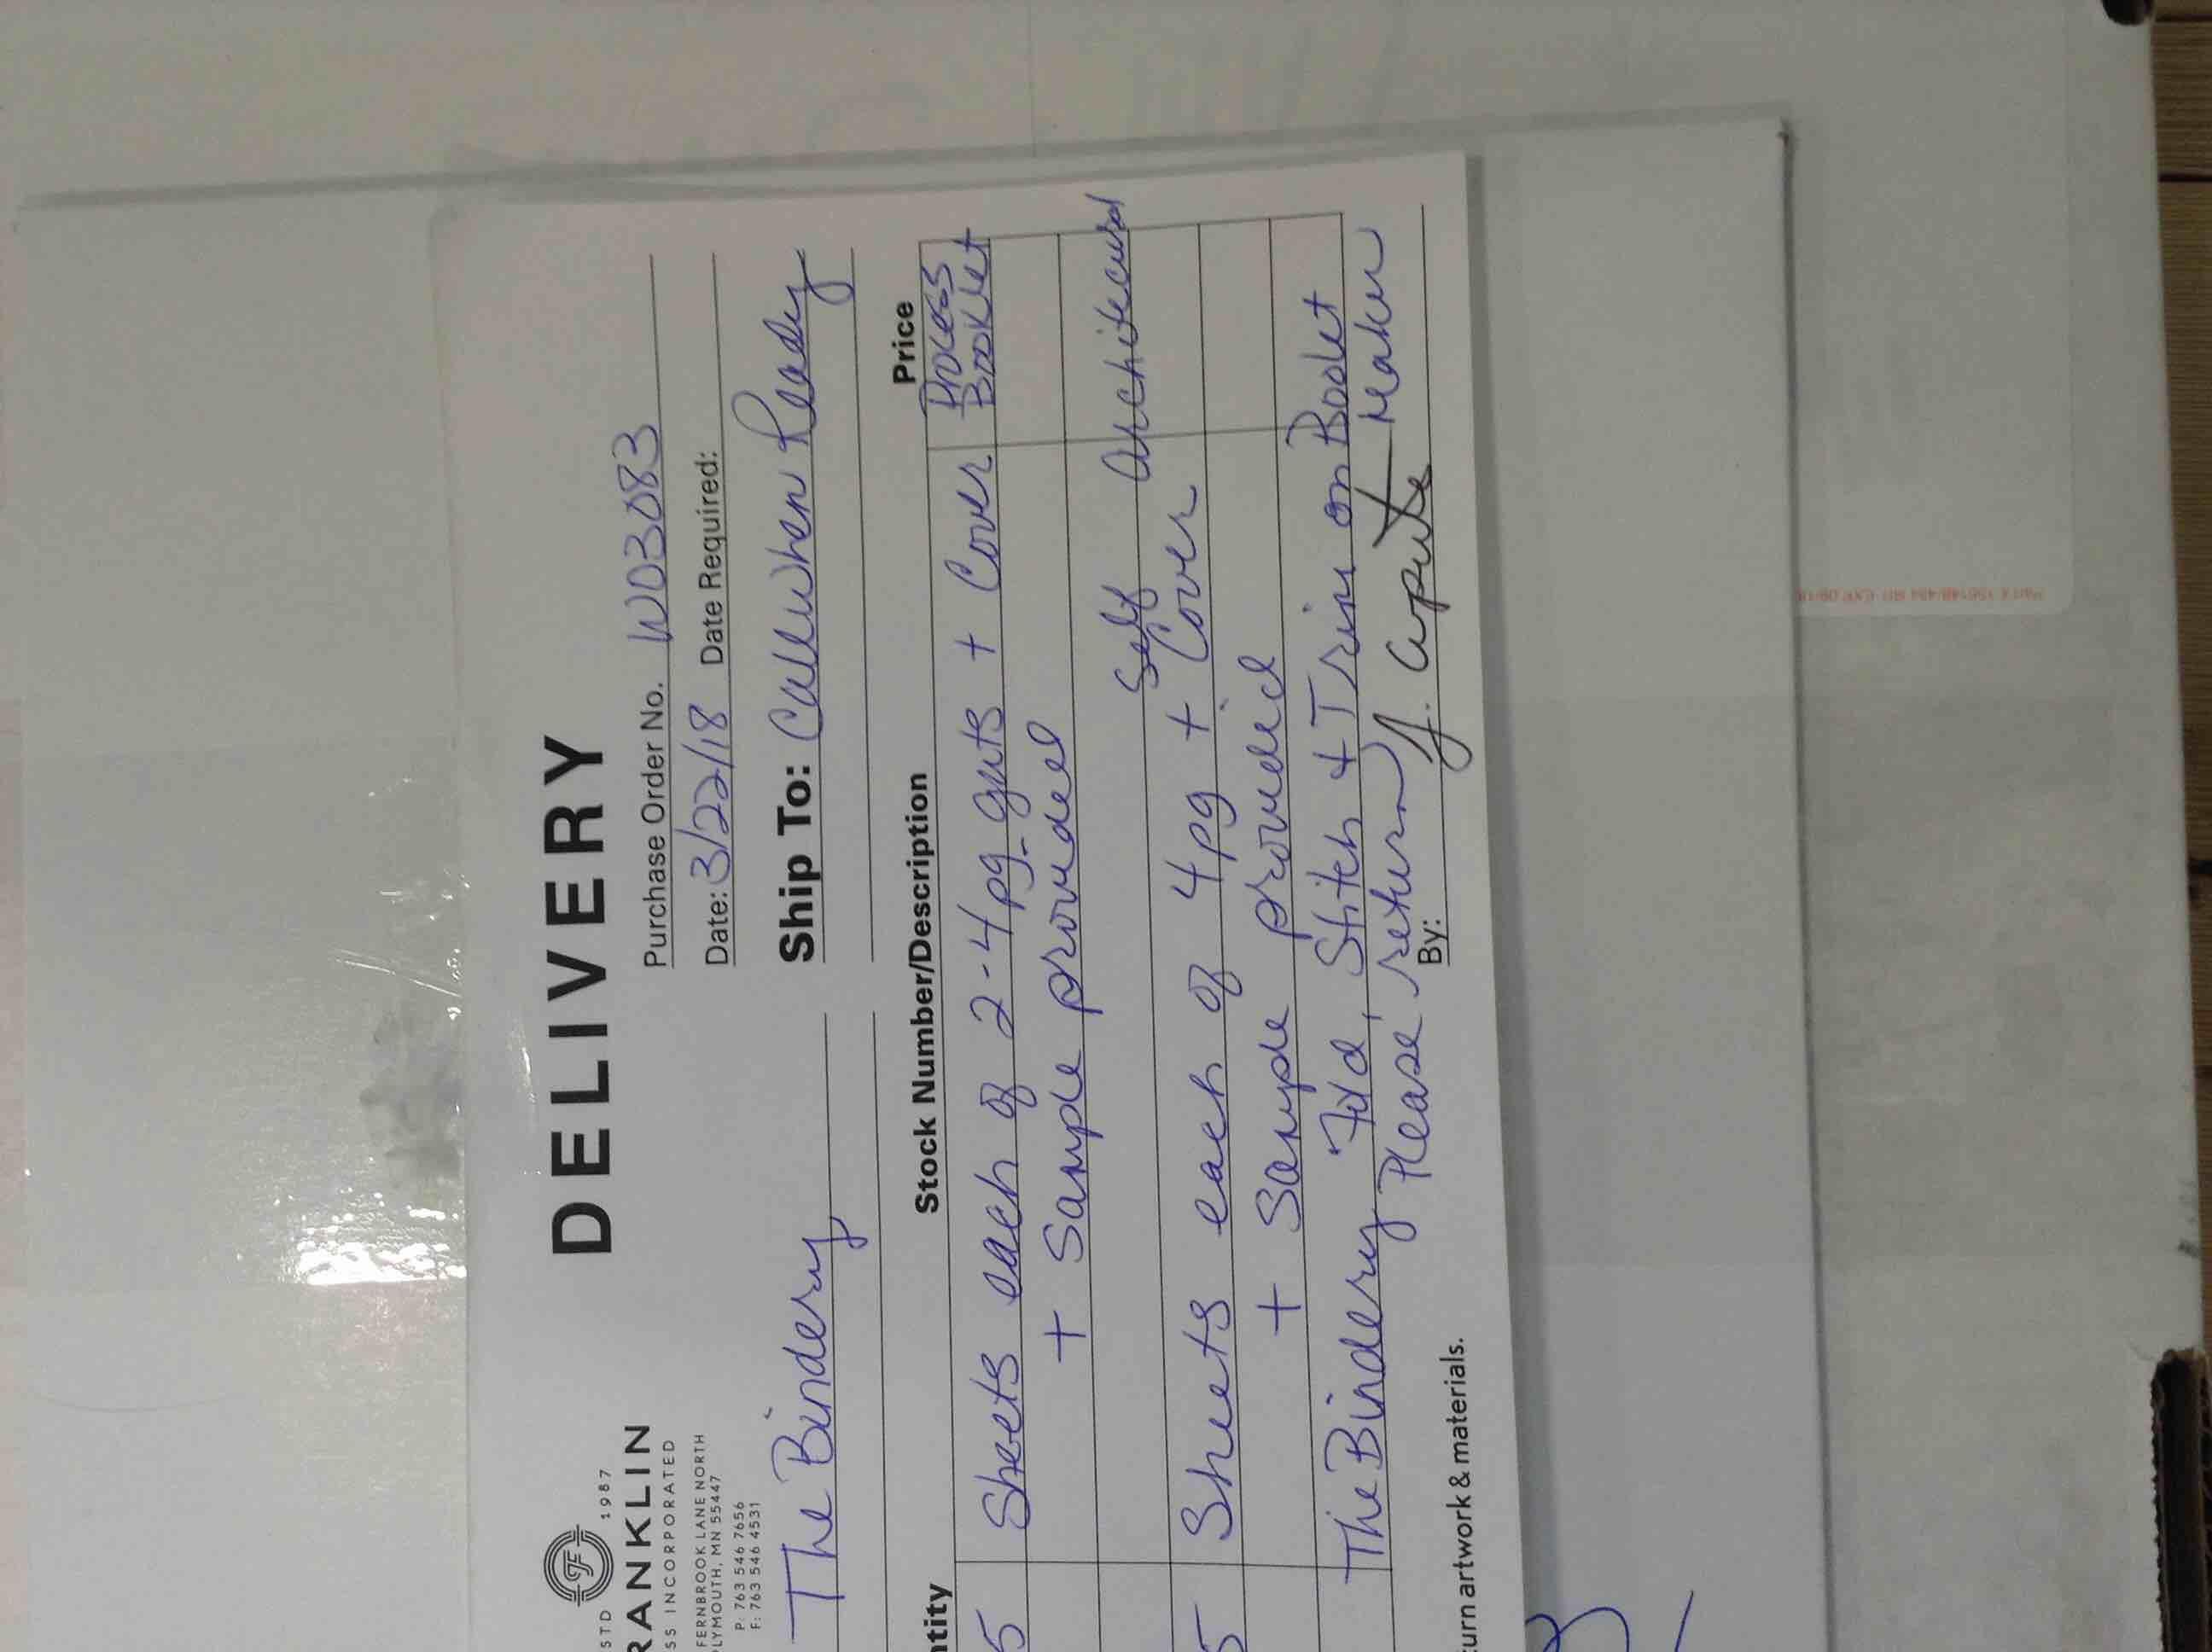 STD 1987
RANKLIN
SS INCORPORATED
FERNBROOK LANE NORTH
LYMOUTH, MN 55447
P: 763 546 7656
F: 763 546 4531
DELIVERY
Purchase Order No. W03083
Date: 3/22/18 Date Required:
The Bindery
Ship To: Call when Ready
ntity Stock Number/Description Price
5 Sheets each of 2-4 pg guts + Cover Process Booklet
+ Sample provided
Self Architecural
5 Sheets each of 4 pg + Cover
+ Sample provided
The Bindery Fold, Stitch + Trim on Booket
Please return Maker
turn artwork & materials.
By: